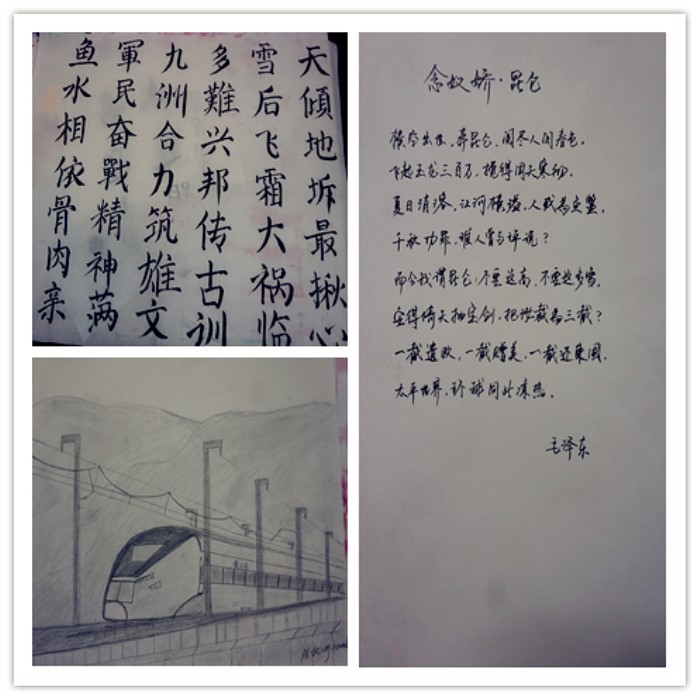 天傾地坼最揪心
雪后飞霜大祸临
多難兴邦传古训
九洲合力筑雄文
軍民奋戰精神满
鱼水相依骨肉亲
念奴娇·昆仑
横空出世,莽昆仑,阅尽人间春色。
飞起玉龙三百万,搅得周天寒彻。
夏日消溶,江河横溢,人或为鱼鳖。
千秋功罪,谁人曾与评说?
而今我谓昆仑:不要这高,不要这多雪。
安得倚天抽宝剑,把汝裁为三截?
一截遗欧,一截赠美,一截还東國。
太平世界,环球同此凉热。
毛泽东